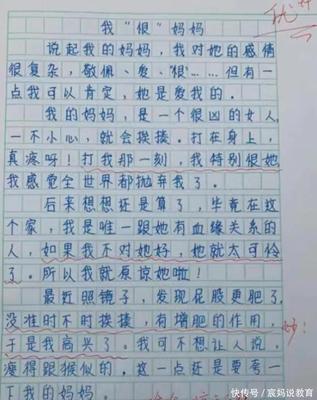 优+
我"恨"妈妈
说起我的妈妈，我对她的感情
很复杂，敬佩、爱、恨……但有一
点我可以肯定，她是爱我的。
我的妈妈，是一个很凶的女人，
一不小心，就会挨揍。打在身上，
真疼呀！打我那一刻，我特别恨她，
我感觉全世界都抛弃我了。
后来想想还是算了，毕竟在这
个家，我是唯一跟她有血缘关系的
人，如果我不对她好，她就太可怜
了。所以我就原谅她啦！
最近照镜子，发现屁股更肥了，
没准时不时挨揍，有增肥的作用，
于是我高兴了。我可不想让人说，
瘦得跟猴似的。这一点还是要夸一
下我的妈妈。
妙！
快传号/宸妈说教育